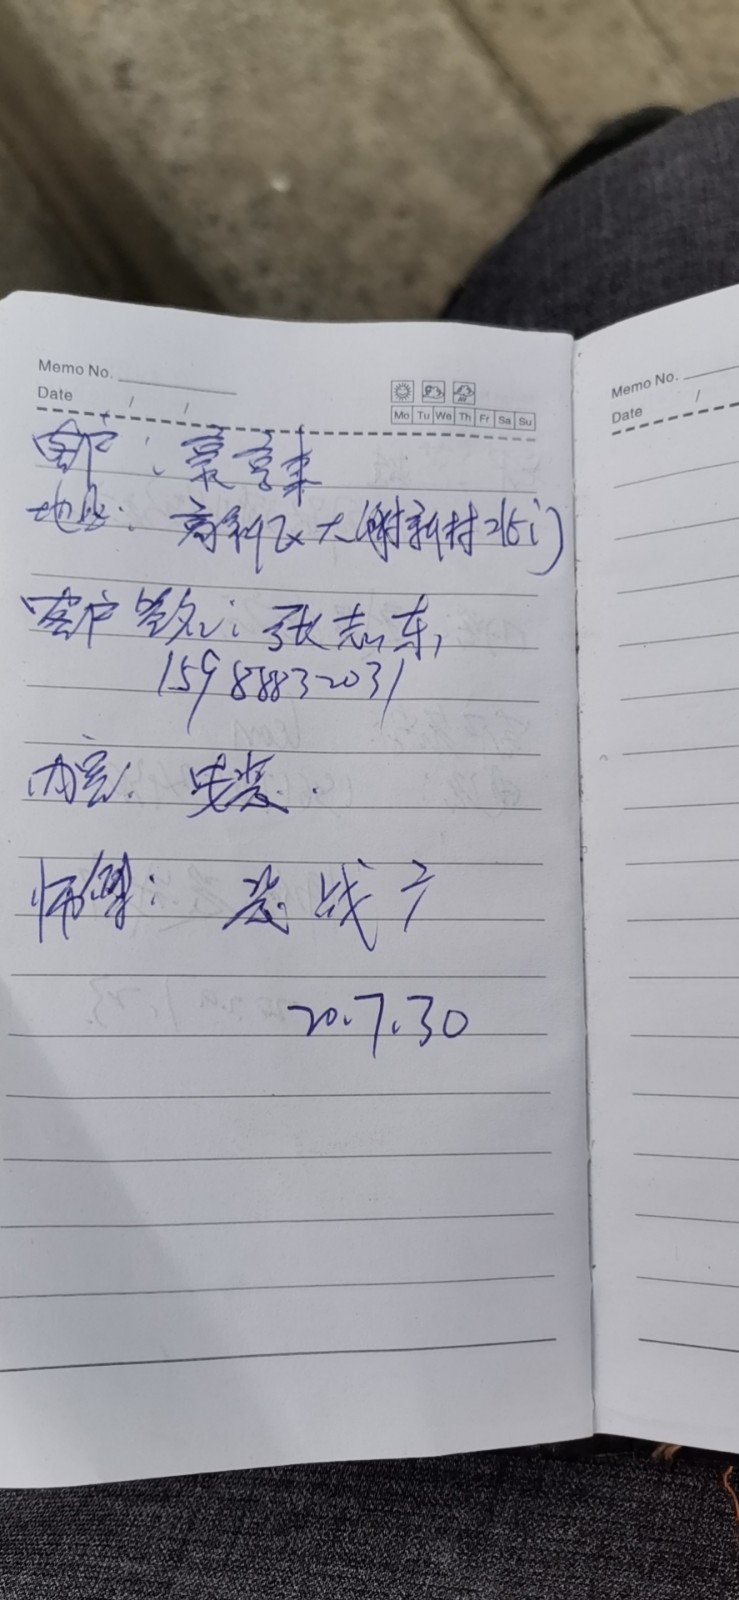 Memo No.
Date / /
Mo Tu We Th Fr Sa Su
客户:
地址: 高新区大谢新村北门
客户签名: 张志东
15988832031
内容: 安装.
师傅: 战
20.7.30
Memo No.
Date /